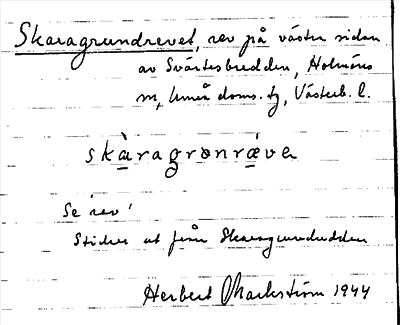 Skaragrundrevet, rev på västra sidan
av Svärtesbredden, Holmöns
sn, Umeå doms. tg, Västerb. l.
skàragrɵnrǽve
Se 'rev'
Sticker ut från Skaragrundudden
Herbert Markström 1944